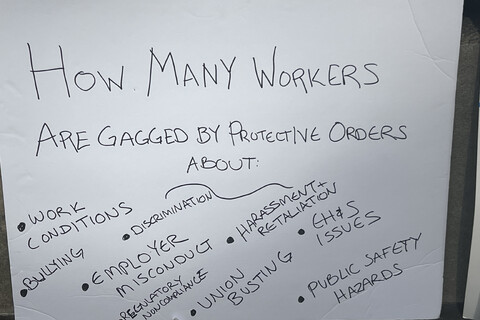 HOW MANY WORKERS
ARE GAGGED BY PROTECTIVE ORDERS
ABOUT:
• WORK
CONDITIONS
• DISCRIMINATION
• HARASSMENT +
RETALIATION
• EH&S
ISSUES
• BULLYING
• EMPLOYER
MISCONDUCT
REGULATORY
NONCOMPLIANCE
• UNION
BUSTING
• PUBLIC SAFETY
HAZARDS